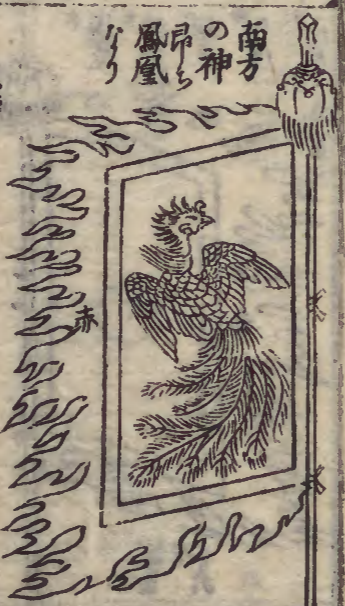 南方
の神
昂ち
鳳凰
なり
赤